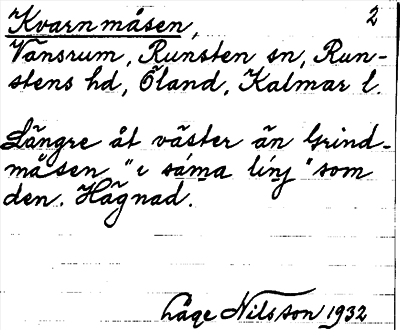 Kvarnmåsen, 2
Vansrum, Runsten sn, Run-
stens hd, Öland, Kalmar l.
Längre åt väster än Grind-
måsen "i sáma línj" som
den. Hägnad.
Låge Nilsson 1932